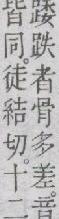 踒跌者骨多差。
皆同。徒結切。十二